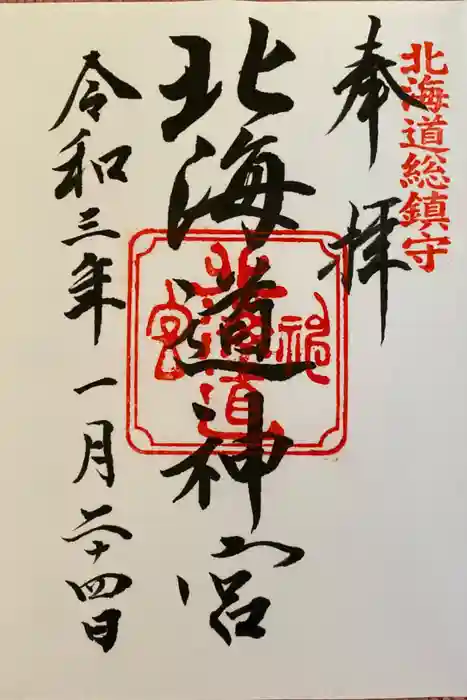 北海道総鎮守
奉拝
北海道神宮
令和三年一月二十四日